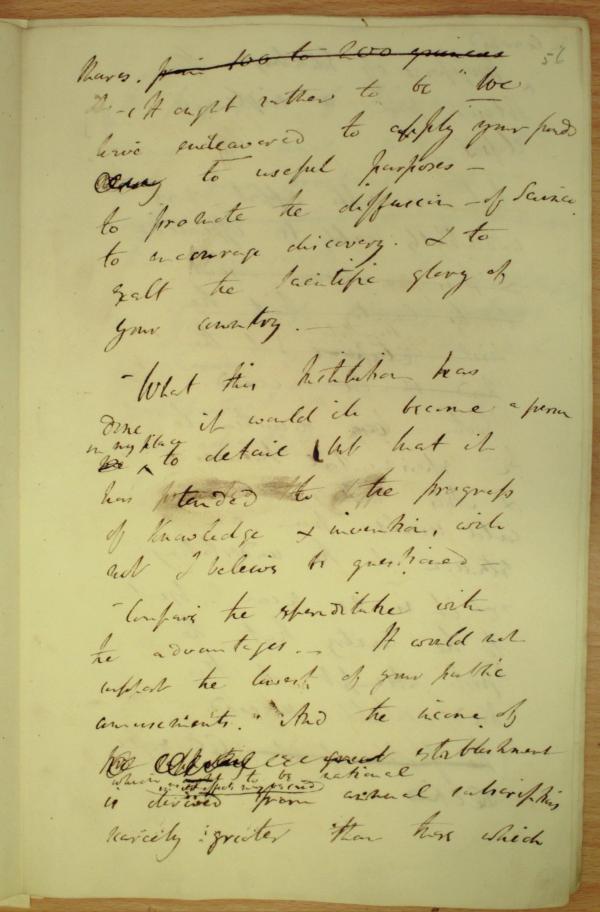 56
shares. from 100 to 200 guineas
– It ought rather to be "We
have endeavoured to apply your funds
to useful purposes –
to promote the diffusion – of Science,
to encourage discovery. & to
exalt the scientific glory of
your country. –
– What this Institution has
done it would ill become a person
in my place
to detail but that it
has tended to the progress
of Knowledge & invention, will
not I believe be questioned –
– Compare the expenditure with
the advantages. – It would not
support the lowest of your public
amusements." And the income of
great establishment
which to be national
is derived from annual subscriptions
scarcely greater than those which